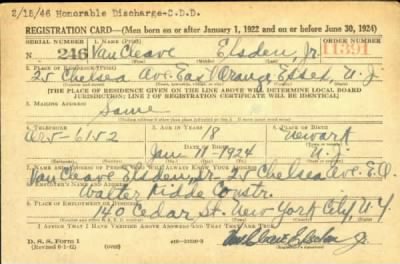 2/15/46 Honorable Discharge-C.D.D.
REGISTRATION CARD—(Men born on or after January 1, 1922 and on or before June 30, 1924)
SERIAL NUMBER 1. NAME (Print) ORDER NUMBER
N 246 Van Cleave Elsden, Jr. 11391
2. PLACE OF RESIDENCE (Print)
25 Chelsea Ave. East Orange Essex, N.J.
[THE PLACE OF RESIDENCE GIVEN ON THE LINE ABOVE WILL DETERMINE LOCAL BOARD
JURISDICTION; LINE 2 OF REGISTRATION CERTIFICATE WILL BE IDENTICAL]
3. MAILING ADDRESS
Same
4. TELEPHONE 5. AGE IN YEARS 6. PLACE OF BIRTH
18 Newark
6152 DATE OF BIRTH
Jan 1924 N.J.
7. NAME AND ADDRESS OF PERSON WHO WILL ALWAYS KNOW YOUR ADDRESS
Van Cleave Elsden, 25 Chelsea Ave. E.O.
8. EMPLOYER'S NAME AND ADDRESS
Walter Kidde Constr.
9. PLACE OF EMPLOYMENT OR BUSINESS
140 Cedar St. New York City N.Y.
I AFFIRM THAT I HAVE VERIFIED ABOVE ANSWERS AND THAT THEY ARE TRUE.
D. S. S. Form 1
(over)